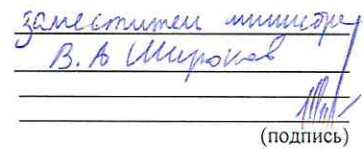 заместител министра
В. А Широков
(подпись)